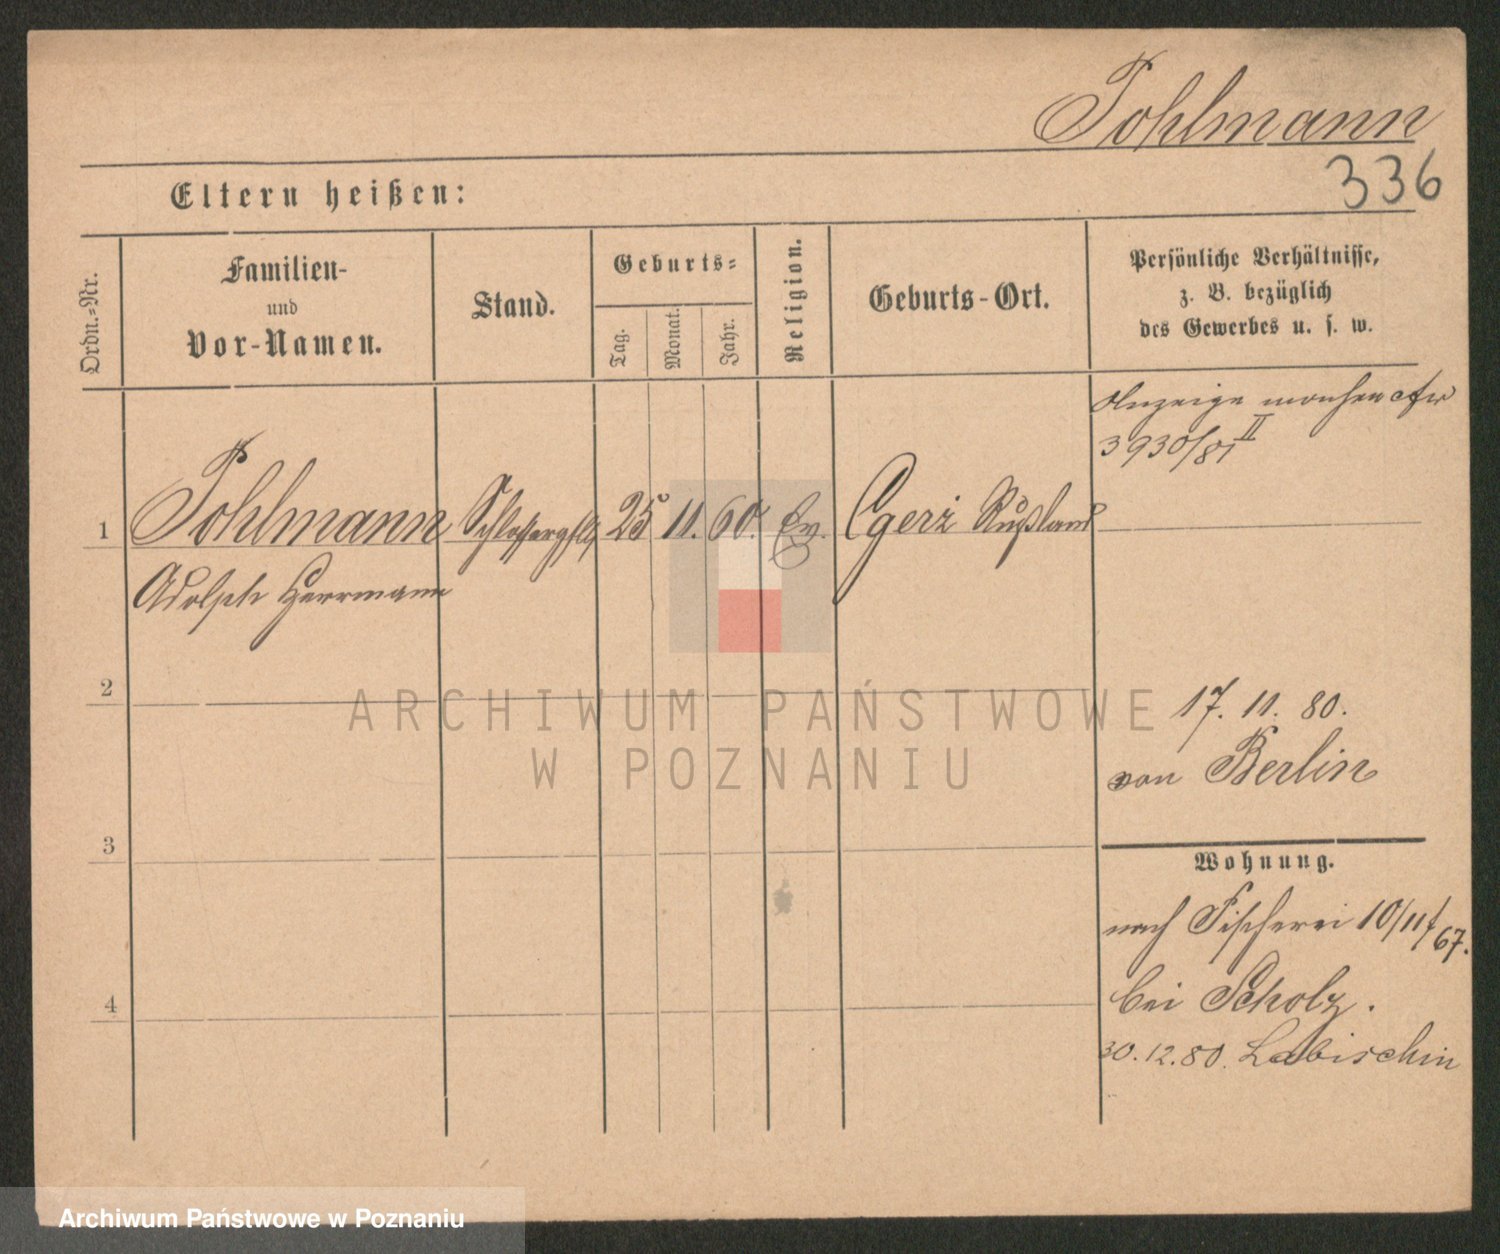 Pohlmann
336
Eltern heißen:
Ordn.-Nr.
Familien-
und
Vor-Namen.
Stand.
Geburts-
Tag.
Monat.
Jahr.
Religion.
Geburts-Ort.
Persönliche Verhältnisse,
z. B. bezüglich
des Gewerbes u. s. w.
Anzeige
3930/81 II
1 Pohlmann Schlossergslle 25 11. 60. Ev. Rußland
Adolph Herrmann
2
17. 11. 80.
von Berlin
3
Wohnung.
nach Fischerei 10/11/67.
bei Scholz.
4
30.12.80. Labischin
ARCHIWUM PAŃSTWOWE
W POZNANIU
Archiwum Państwowe w Poznaniu